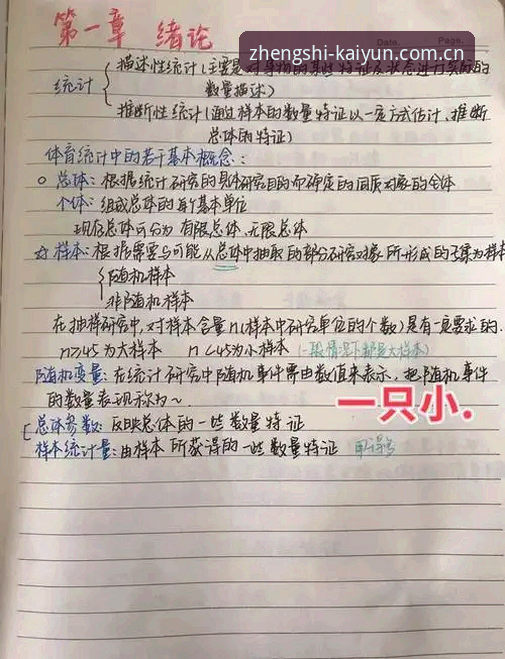 第一章 绪论
zhengshi-kaiyun.com.cn
Date. Page.
统计
描述性统计(主要是对事物的某些特征及状态进行实际的
数量描述)
推断性统计(通过样本的数量特征以一定方式估计、推断
总体的特征)
体育统计中的若干基本概念:
总体:根据统计研究的具体研究目的而确定的同质对象的全体
个体:组成总体的每个基本单位
现存总体可分为 有限总体、无限总体
☆ 样本:根据需要与可能从总体中抽取的部分研究对象所形成的子集为样本
随机样本
非随机样本
在抽样研究中,对样本含量n(样本中研究单位的个数)是有一定要求的.
n≥45为大样本 n<45为小样本 (一般情况下都是大样本)
随机变量:在统计研究中随机事件需由数值来表示,把随机事件
的数量表现称为~.
一只小.
总体参数:反映总体的一些数量特征
样本统计量:由样本所获得的一些数量特征